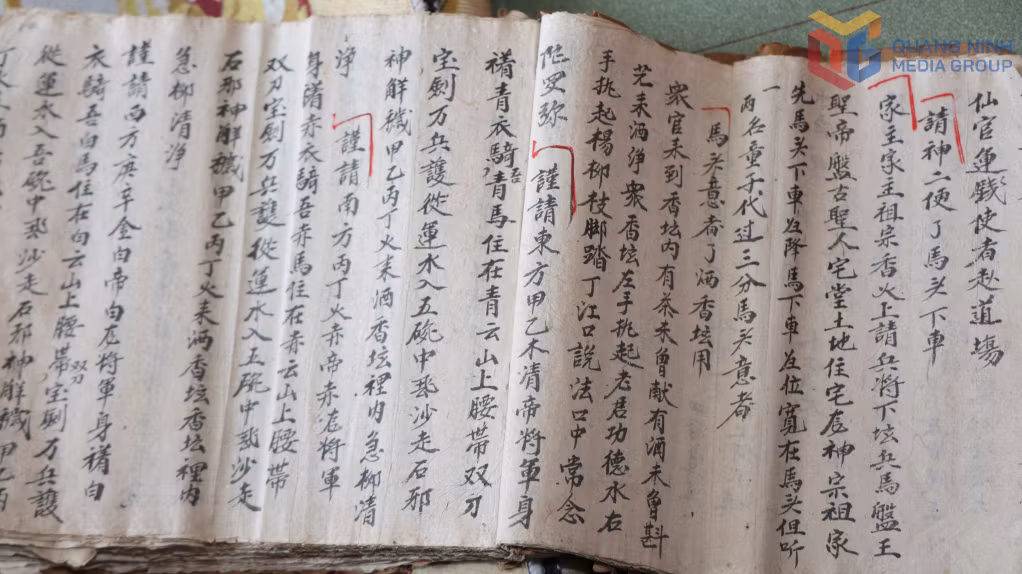 仙官運錢使者赴道場
請神二便了馬头下車
家主家主祖宗香火上請兵将下坛兵馬盤王
聖帝盤古聖人宅堂土地住宅㡯神宗祖家
先馬头下車 降馬下車 位寛在馬头但听
一
两名童子代过三分馬头意者
馬头意者了洒香坛用
衆官耒到香坛内有茶未曾献有酒未曾斟
耒洒净衆香坛左手执起老君功德水右
手执起楊柳枝脚踏丁江口説法口中常念
陁罗弥
謹請東方甲乙木清帝将軍身
褙青衣騎吾青馬住在青云山上腰带双刀
宝劍万兵護從運水入五碗中飛沙走石邪
神觧穢甲乙丙丁火耒洒香坛裡内急柳清
净
謹請南方丙丁火赤帝赤㡯将軍
身褙赤衣騎吾赤馬住在赤云山上腰带
双刀宝劍万兵護從運水入五碗中飛沙走
石邪神觧穢甲乙丙丁火耒洒香坛香坛裡内
急柳清净
謹請西方庚辛金白帝白㡯将軍身褙白
衣騎吾白馬住在白云山上腰带双刀宝劍万兵護
從運水入吾碗中飛沙走石邪神觧穢甲乙丙
QUANG NINH
MEDIA GROUP